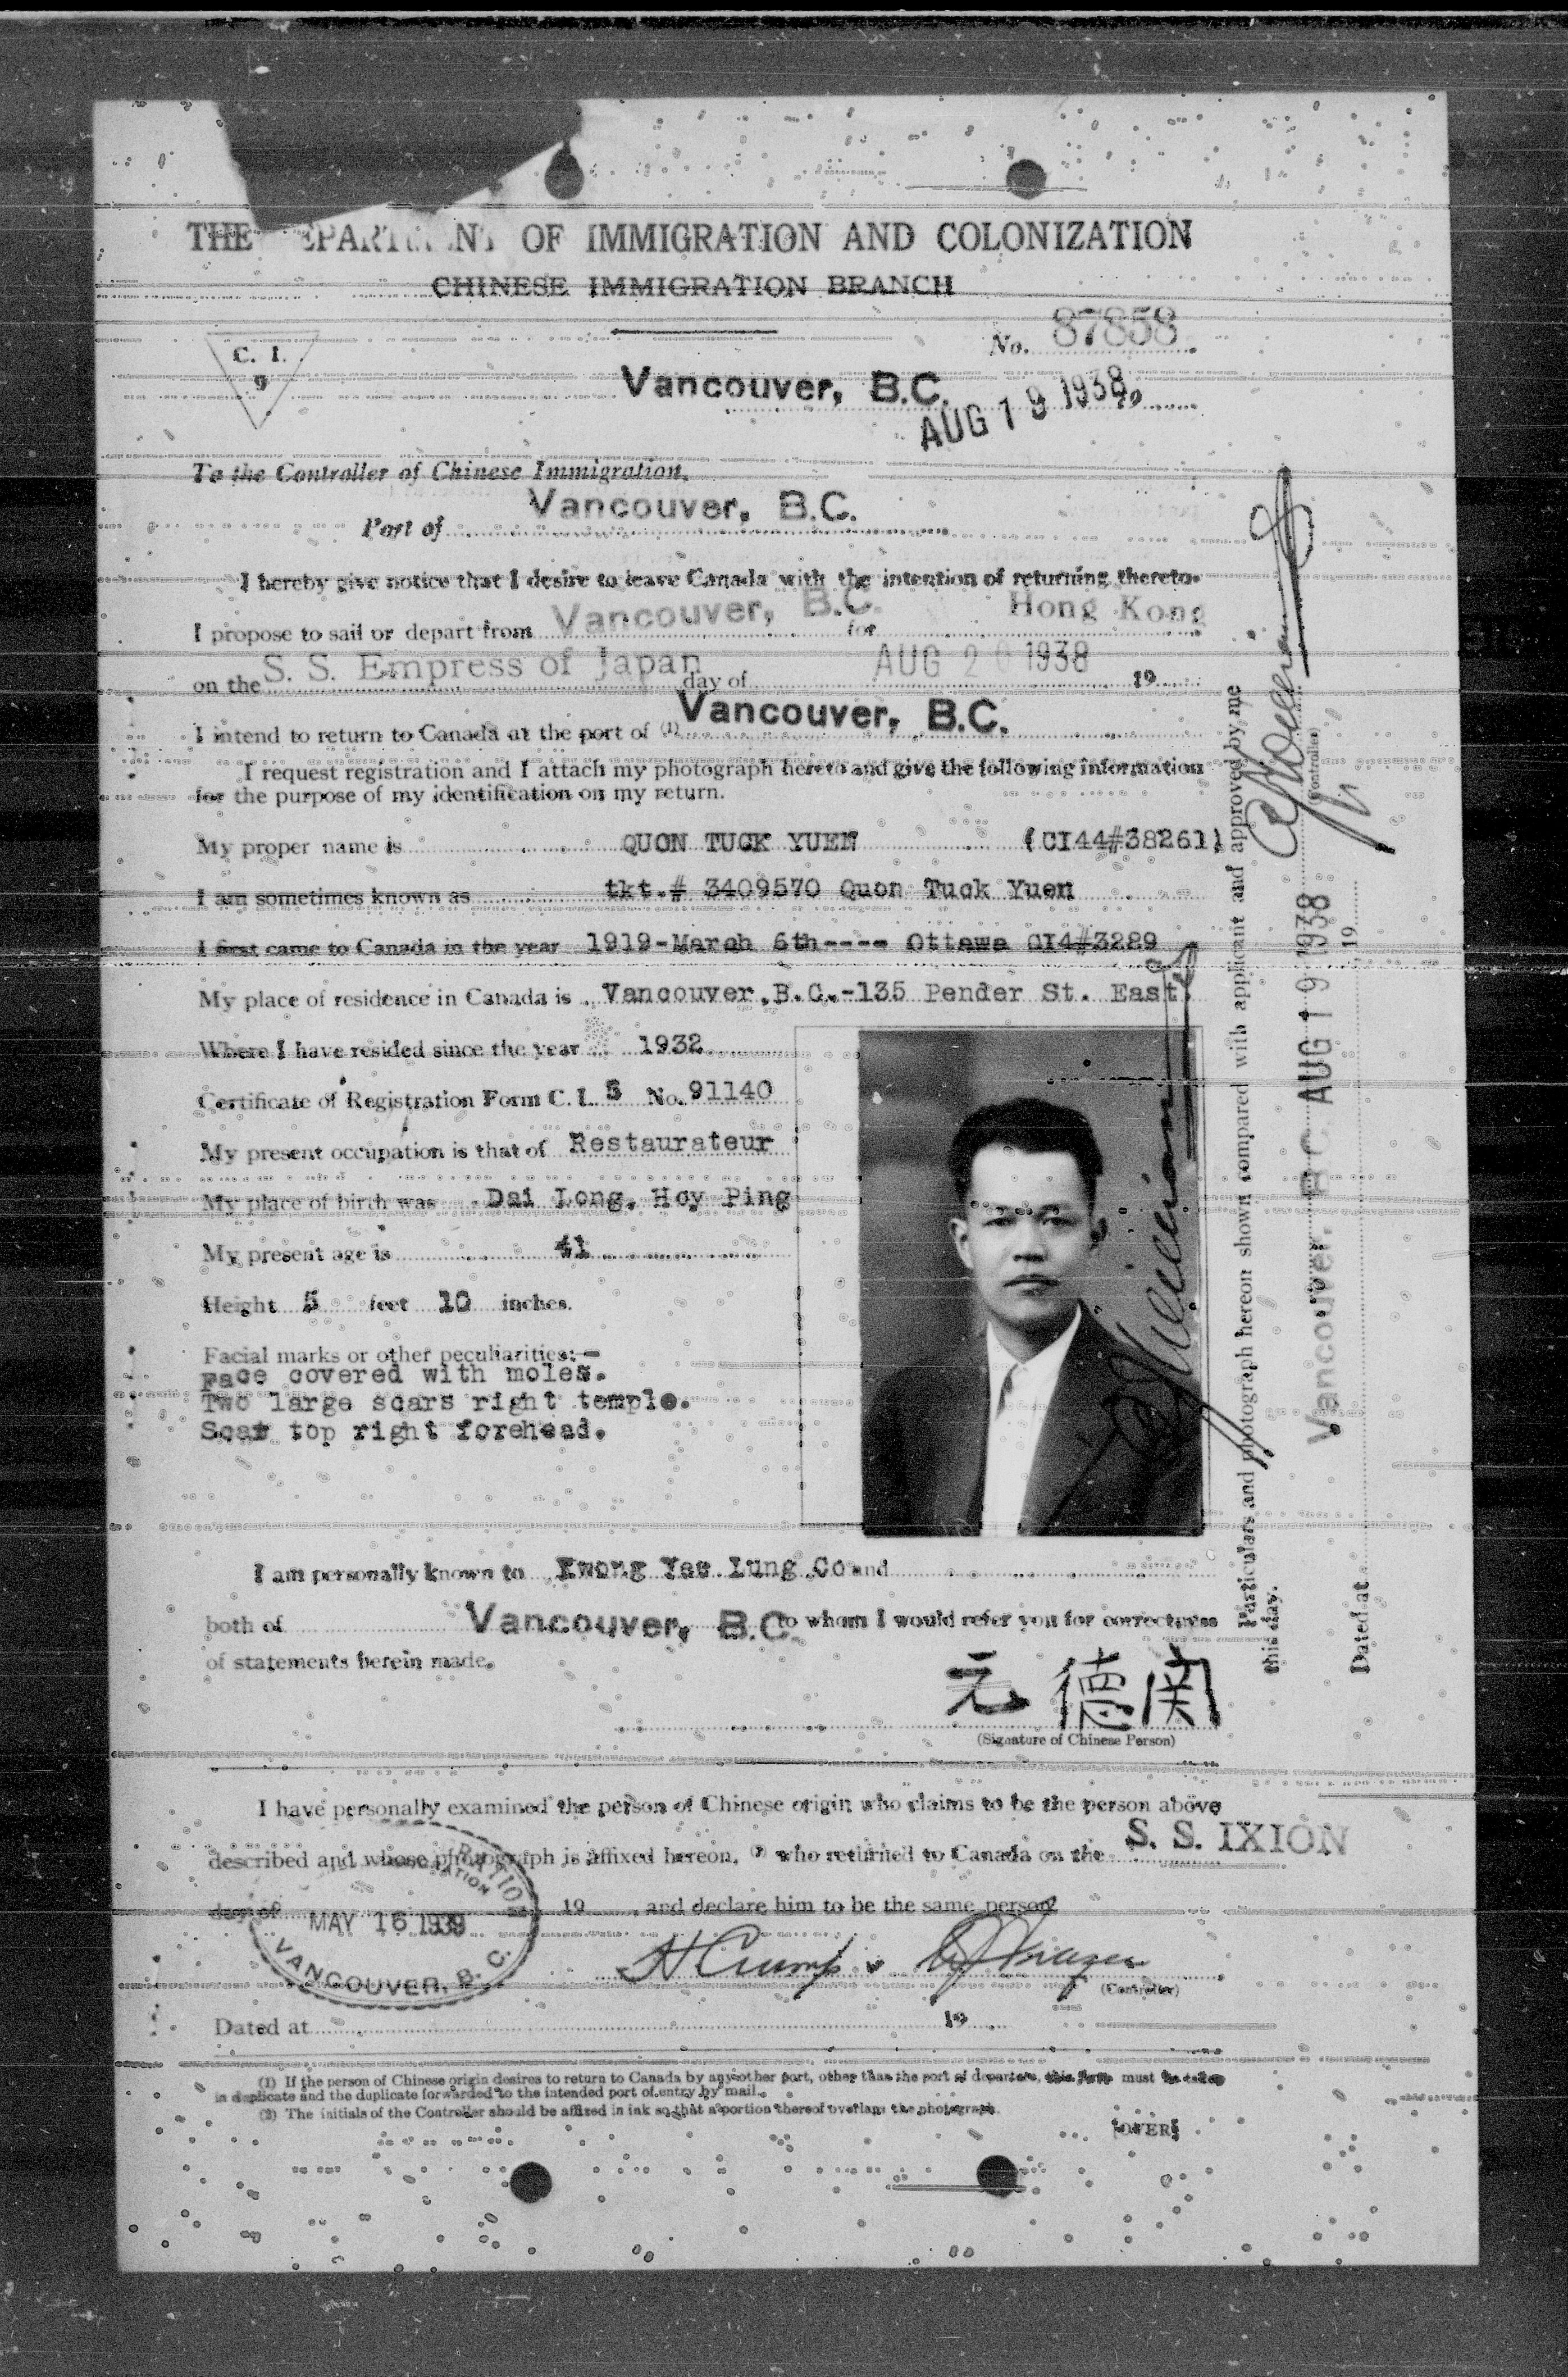 THE DEPARTMENT OF IMMIGRATION AND COLONIZATION
CHINESE IMMIGRATION BRANCH
C. I.
9
No. 87858
Vancouver, B.C.
AUG 19 1938 19
To the Controller of Chinese Immigration,
Port of Vancouver, B.C.
I hereby give notice that I desire to leave Canada with the intention of returning thereto.
I propose to sail or depart from Vancouver, B.C. for Hong Kong
on the S. S. Empress of Japan day of AUG 20 1938 19
I intend to return to Canada at the port of (1) Vancouver, B.C.
I request registration and I attach my photograph hereto and give the following information
for the purpose of my identification on my return.
My proper name is QUON TUCK YUEN (CI44#38261)
I am sometimes known as tkt.# 3409570 Quon Tuck Yuen
I first came to Canada in the year 1919-March 6th---- Ottawa CI4#3289
My place of residence in Canada is Vancouver,B.C.-135 Pender St. East.
Where I have resided since the year 1932
Certificate of Registration Form C. I. 5 No. 91140
My present occupation is that of Restaurateur
My place of birth was Dai Long, Hoy Ping
My present age is 41
Height 5 feet 10 inches.
Facial marks or other peculiarities:—
Face covered with moles.
Two large scars right temple.
Scar top right forehead.
I am personally known to Kwong Yee Lung Co and
both of Vancouver, B.C. to whom I would refer you for correctness
of statements herein made.
元 德 関
(Signature of Chinese Person)
I have personally examined the person of Chinese origin who claims to be the person above
described and whose photograph is affixed hereon, (2) who returned to Canada on the S. S. IXION
day of 19 , and declare him to be the same person
MAY 16 1939
VANCOUVER, B. C.
H Crump
(Controller)
Dated at 19
(1) If the person of Chinese origin desires to return to Canada by any other port, other than the port of departure, this form must be taken
in duplicate and the duplicate forwarded to the intended port of entry by mail.
(2) The initials of the Controller should be affixed in ink so that a portion thereof overlaps the photograph.
[OVER]
Particulars and photograph hereon shown compared with applicant and approved by me
this day.
(Controller)
Dated at Vancouver, B.C. AUG 19 1938 19